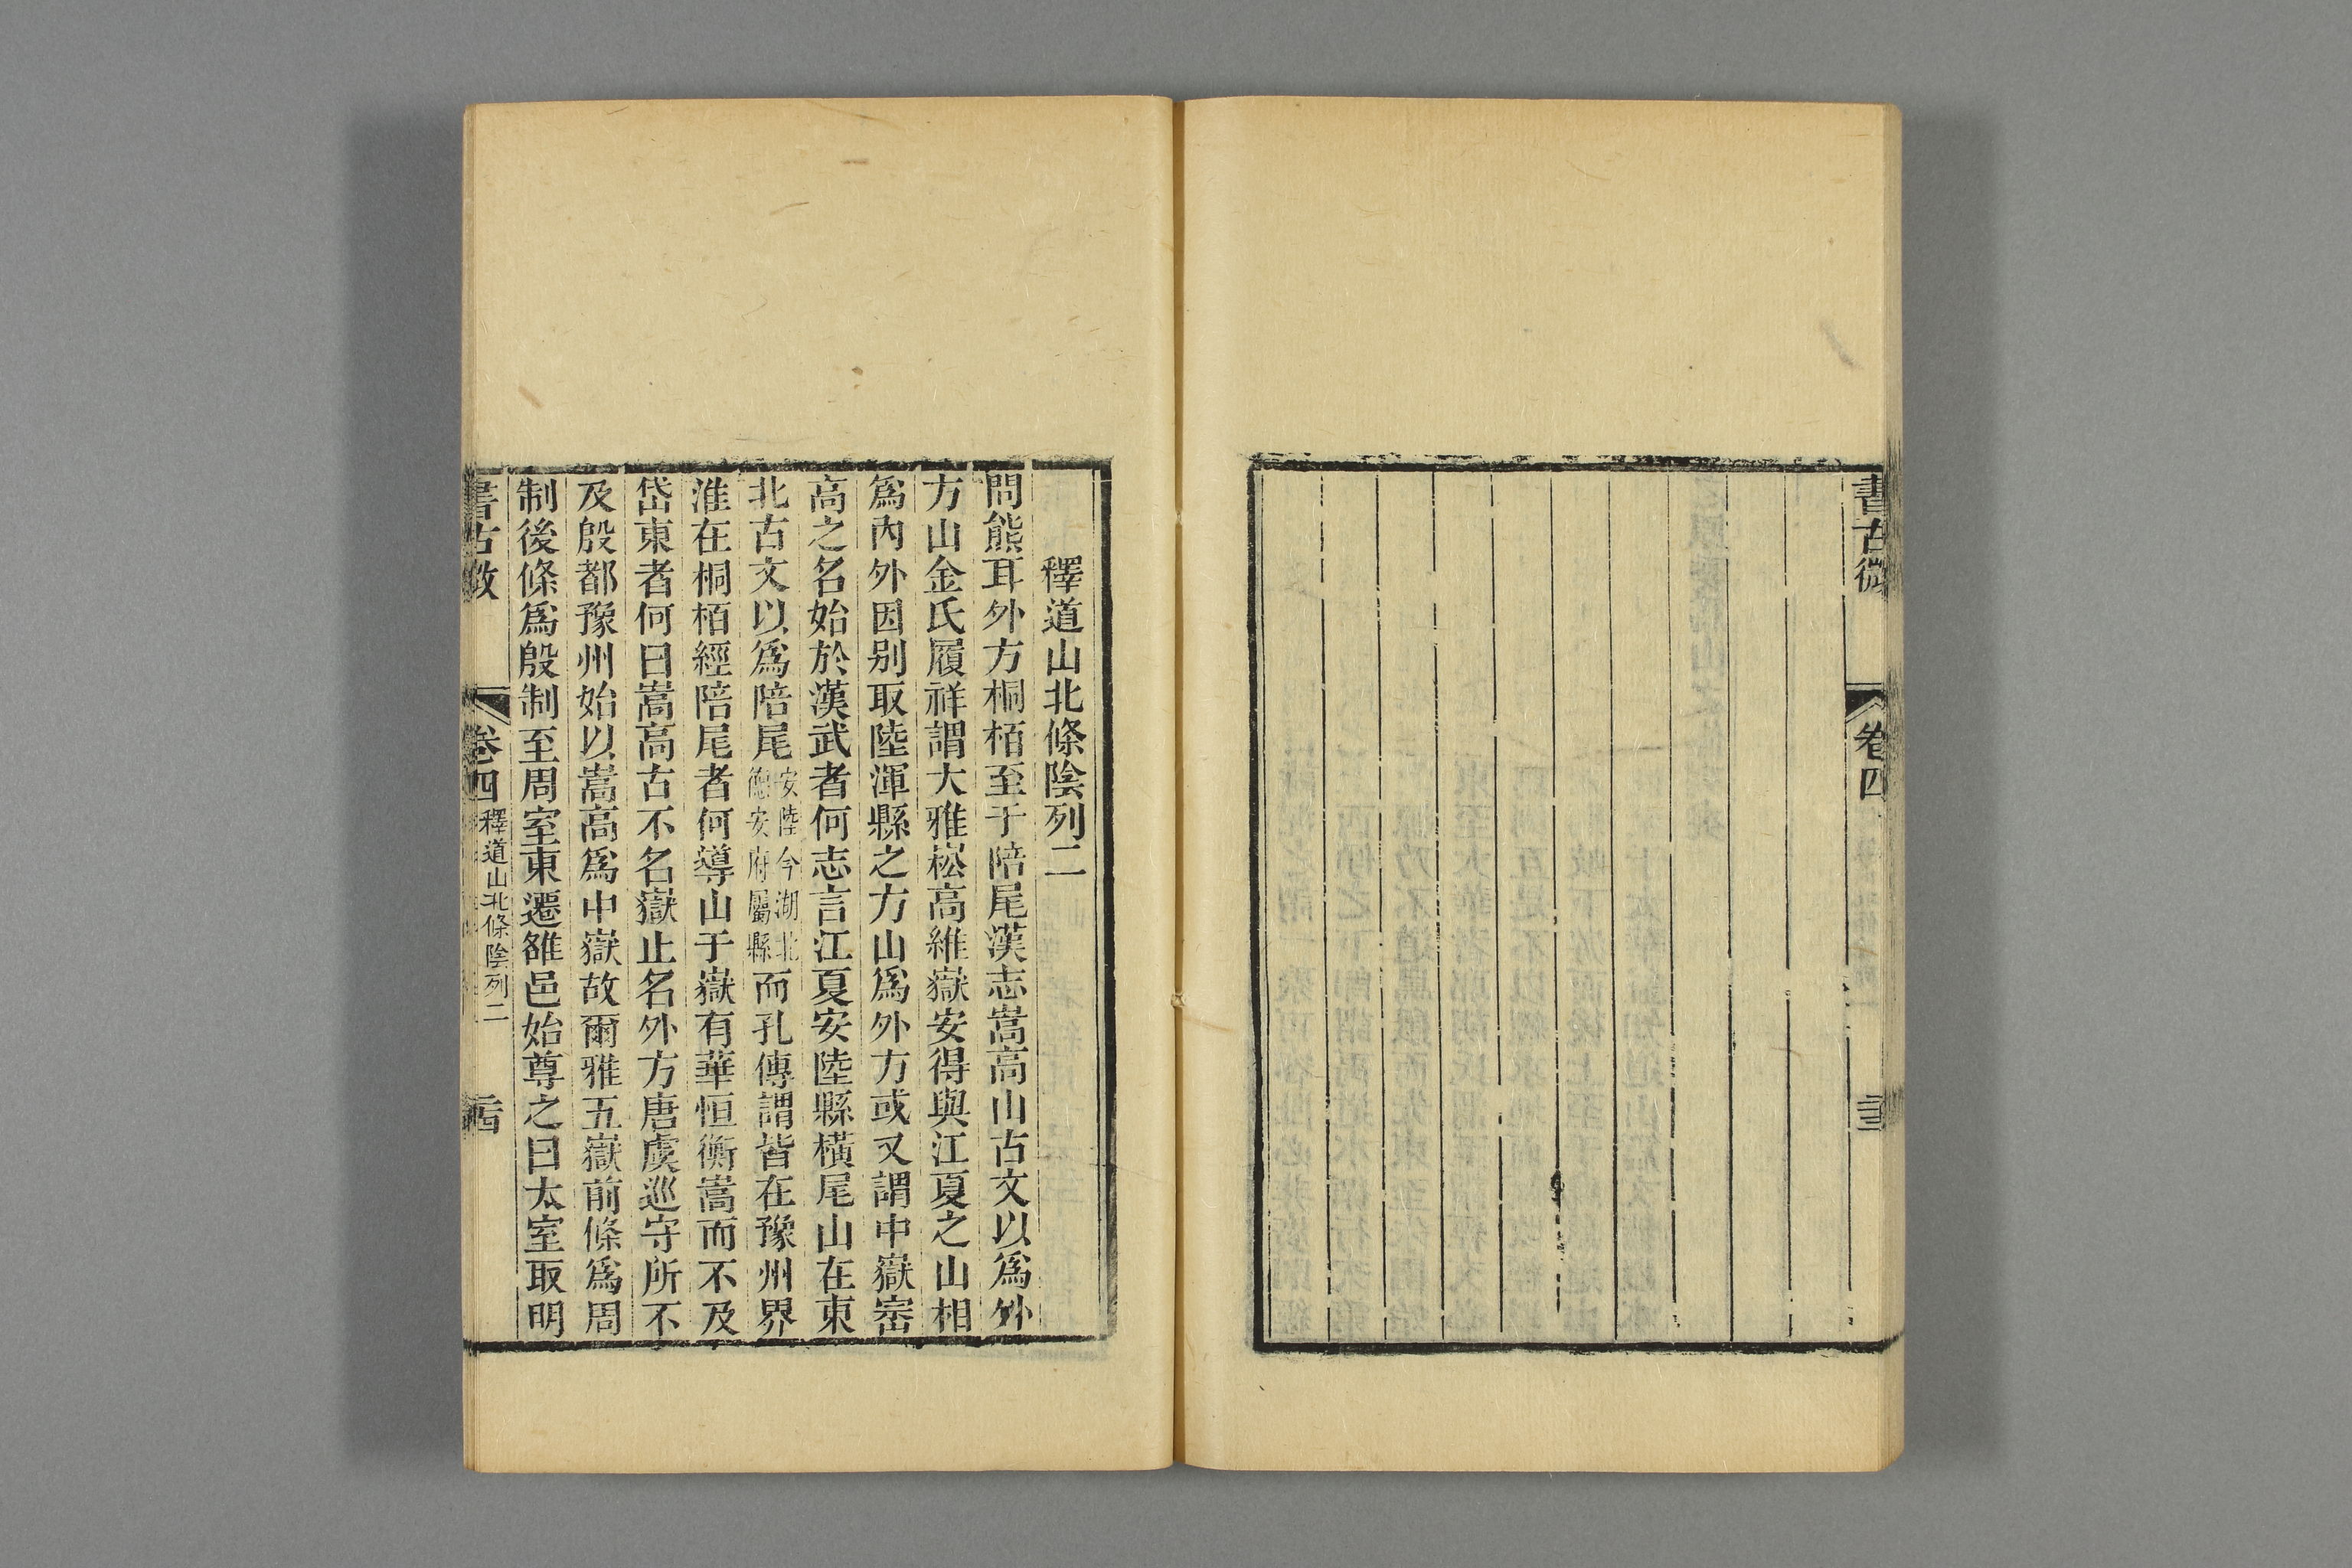 書古微
卷四
三三
釋道山北條陰列二
問熊耳外方桐栢至于陪尾漢志嵩高山古文以爲外
方山金氏履祥謂大雅崧高維嶽安得與江夏之山相
爲內外因別取陸渾縣之方山爲外方或又謂中嶽崈
高之名始於漢武者何志言江夏安陸縣橫尾山在東
北古文以爲陪尾安陸今湖北德安府屬縣而孔傳謂皆在豫州界
淮在桐栢經陪尾者何導山于嶽有華恒衡嵩而不及
岱東者何曰嵩高古不名嶽止名外方唐虞巡守所不
及殷都豫州始以嵩高爲中嶽故爾雅五嶽前條爲周
制後條爲殷制至周室東遷雒邑始尊之曰太室取明
書古微
卷四
釋道山北條陰列二